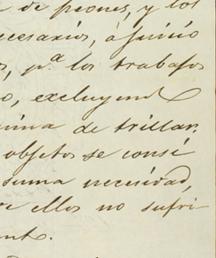 de peones, y los
necesarios, á juicio
s, p.ª los trabajos
o, excluyend
uina de trillar.
objetos se consi
suma necesidad,
e ellos no sufri
ent.